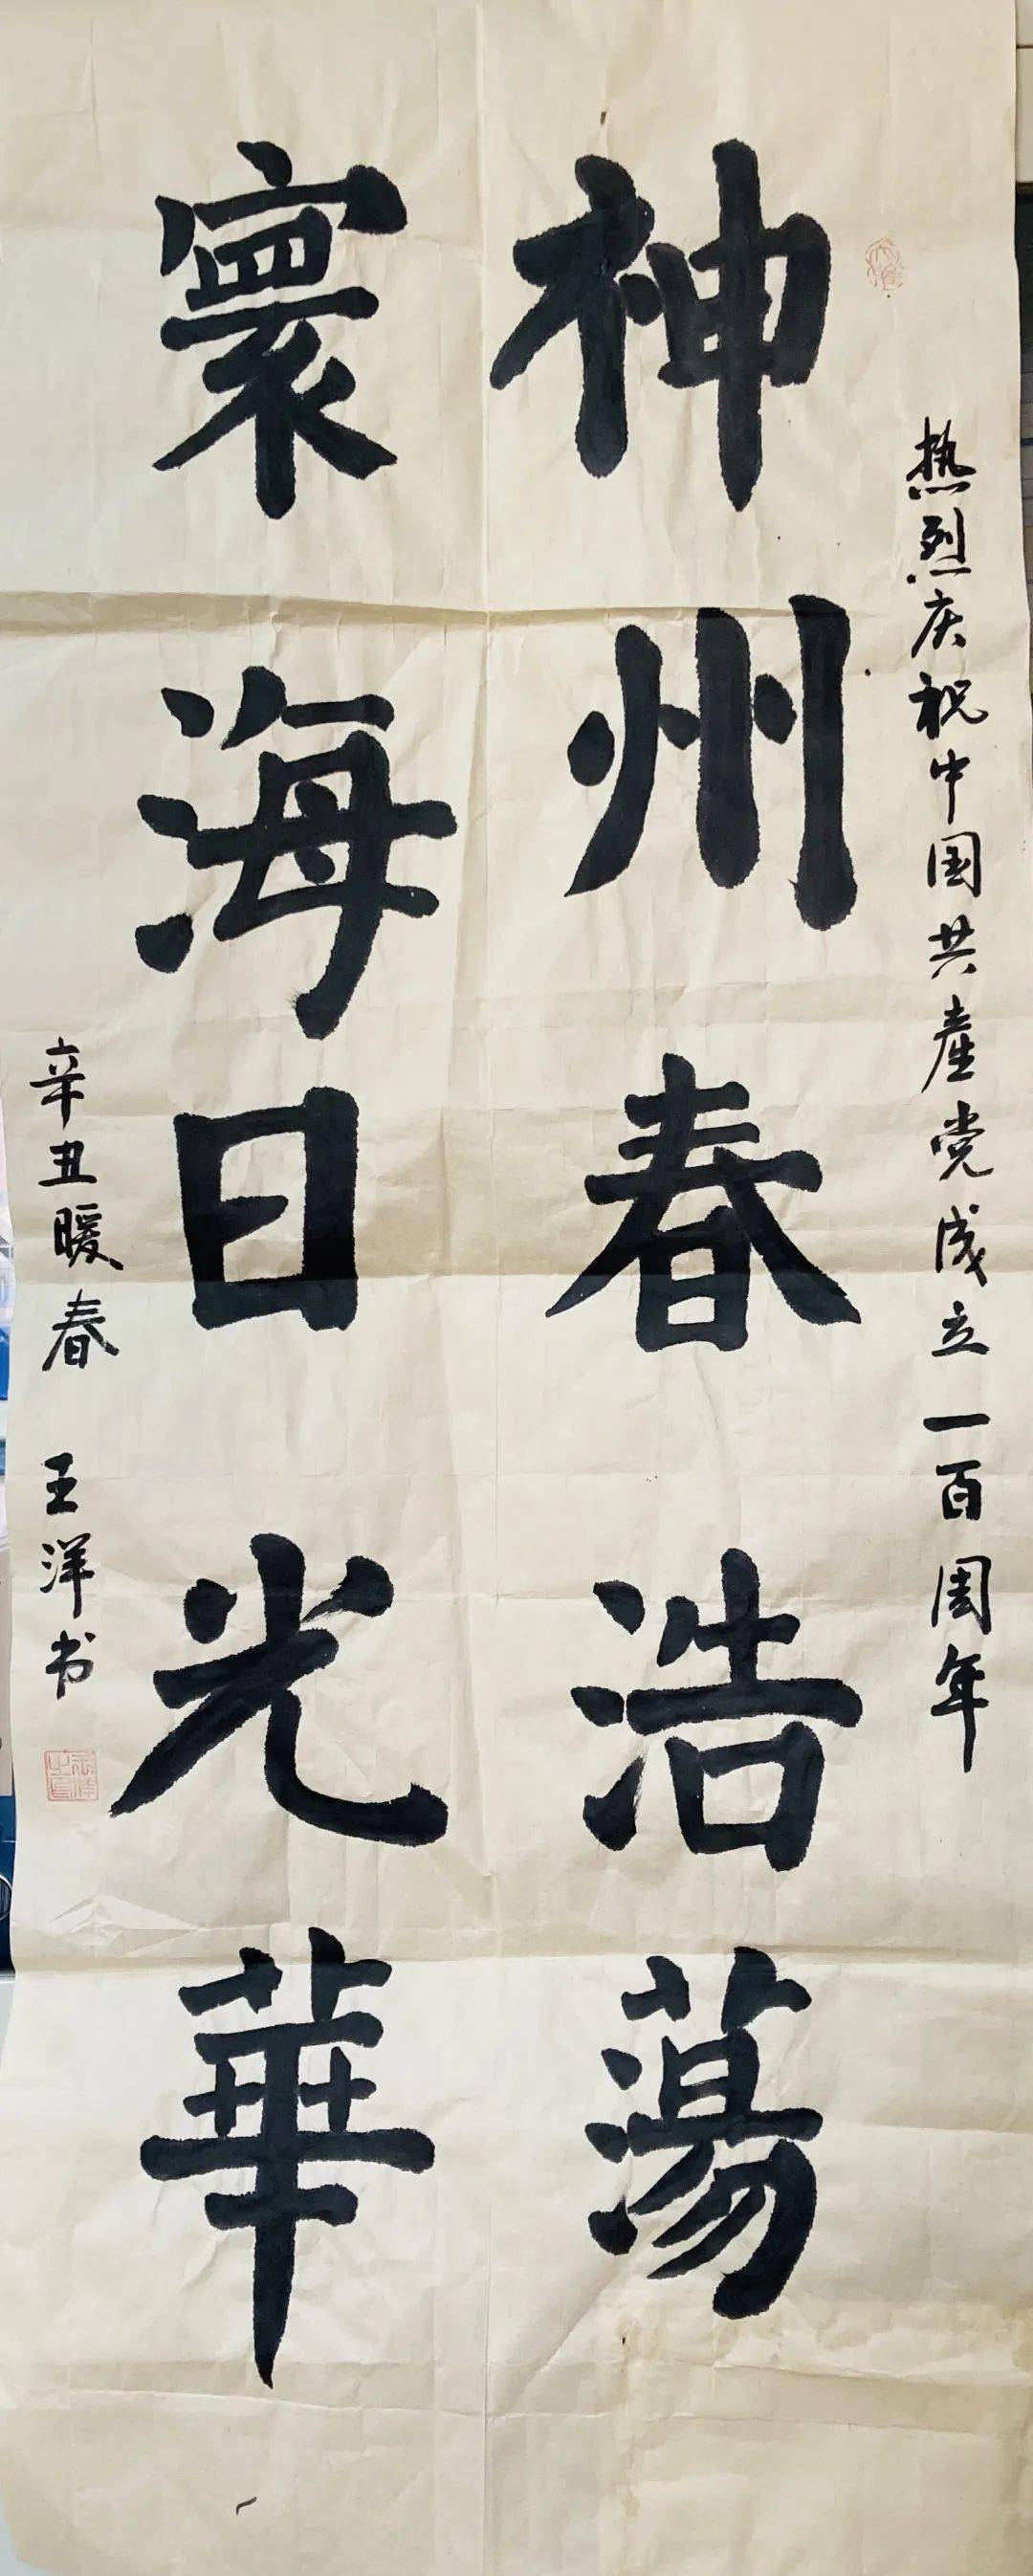 热烈庆祝中国共産党成立一百周年
神州春浩蕩
寰海日光華
辛丑暖春 王洋书